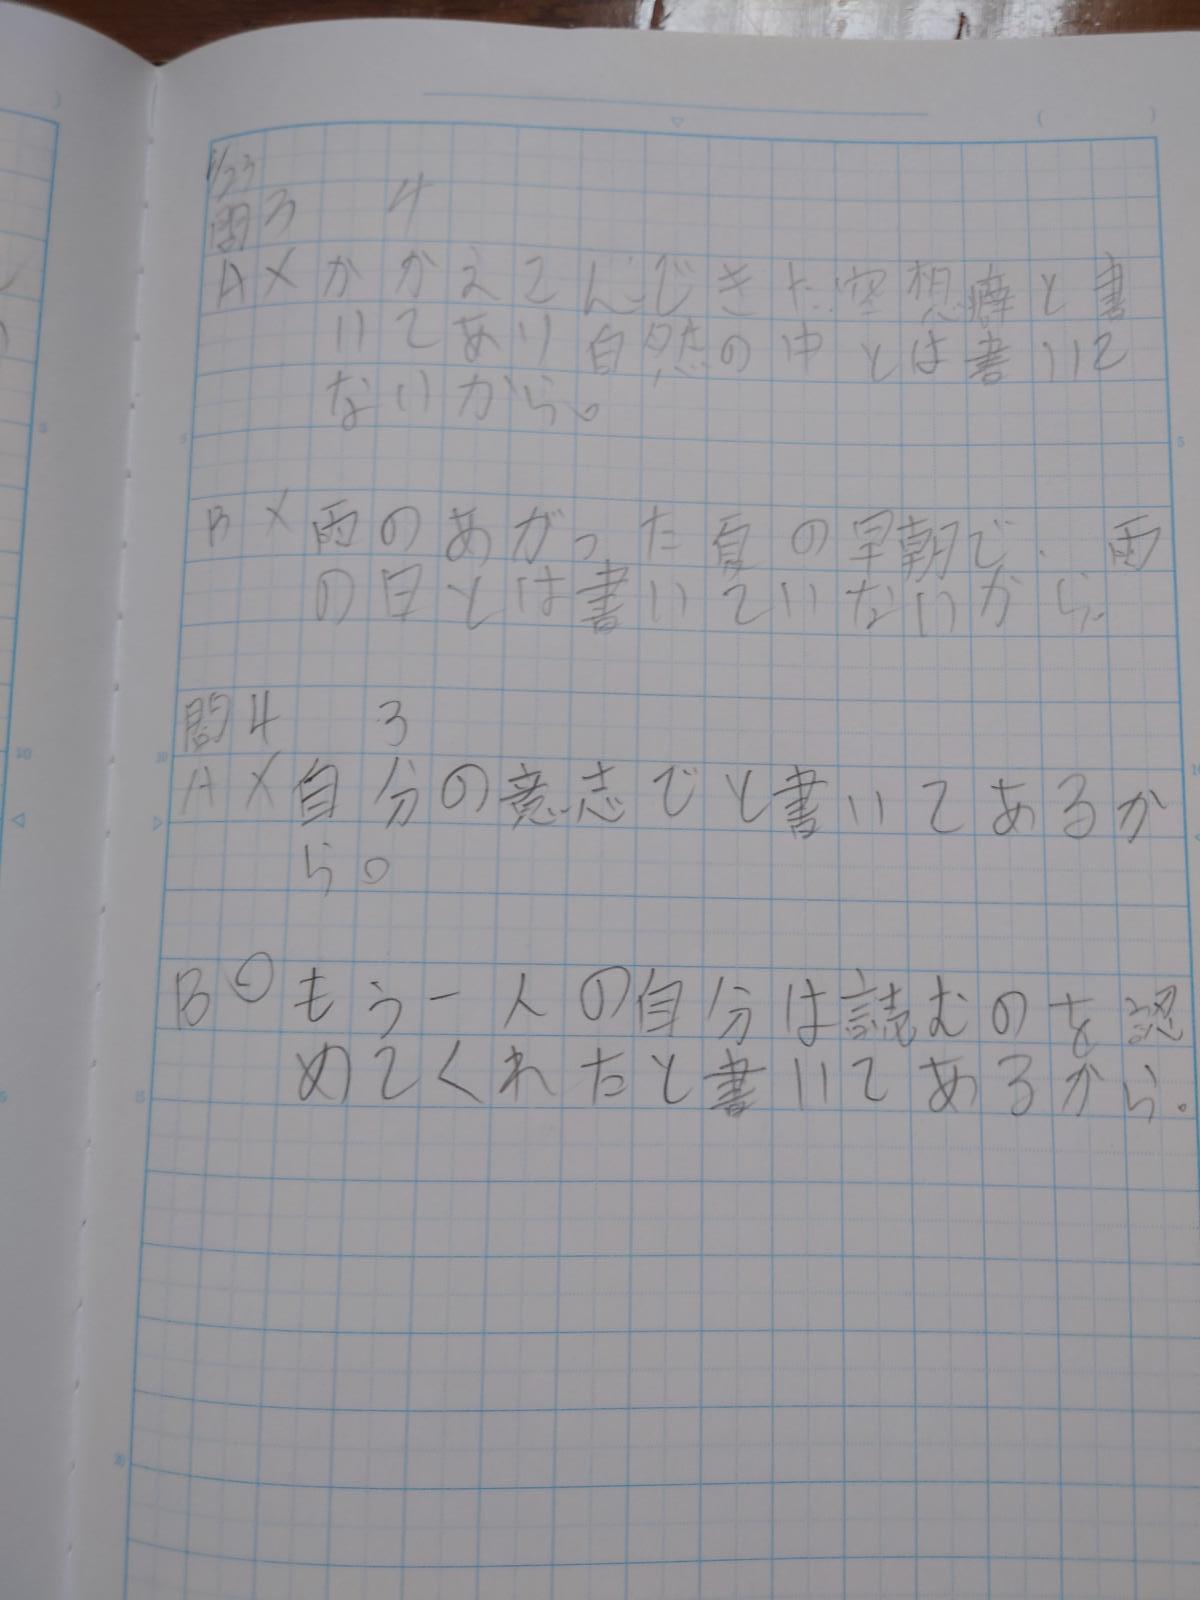 1/23
問3 4
A × かかえてんできた空想癖と書
いてあり自然の中とは書いて
ないから。
B × 雨のあがった夏の早朝で、雨
の日とは書いていないから。
問4 3
A × 自分の意志でと書いてあるか
ら。
B ○ もう一人の自分は読むのを認
めてくれたと書いてあるから。
5
10
15
20